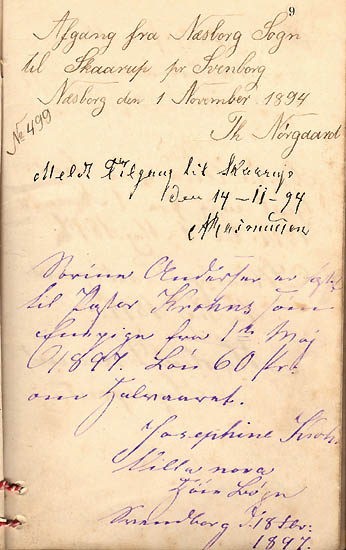 9
Afgang fra Næsborg Sogn
til Skaarup pr Svenborg
Næsborg den 1 November 1894
Th Nörgaard
No 499
Meldt Tilgang til Skaarup
den 14-11-94
Rasmussen
Sorine Andersen er
til Pastor Krohns som
Enepige fra 1ste Maj
1897. Løn 60 Kr.
om Halvaaret.
Josephine Kroh
Villa nova
Svendborg d. 18 Febr.
1897.